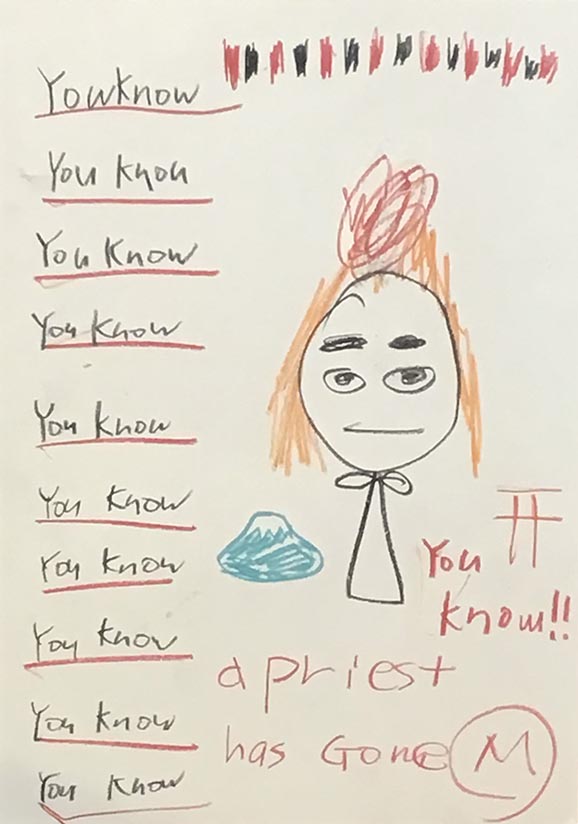 Youknow
You know
You Know
You know
You know
You know
You know
You know
You know
You know
You
know!!
a priest
has Gone M